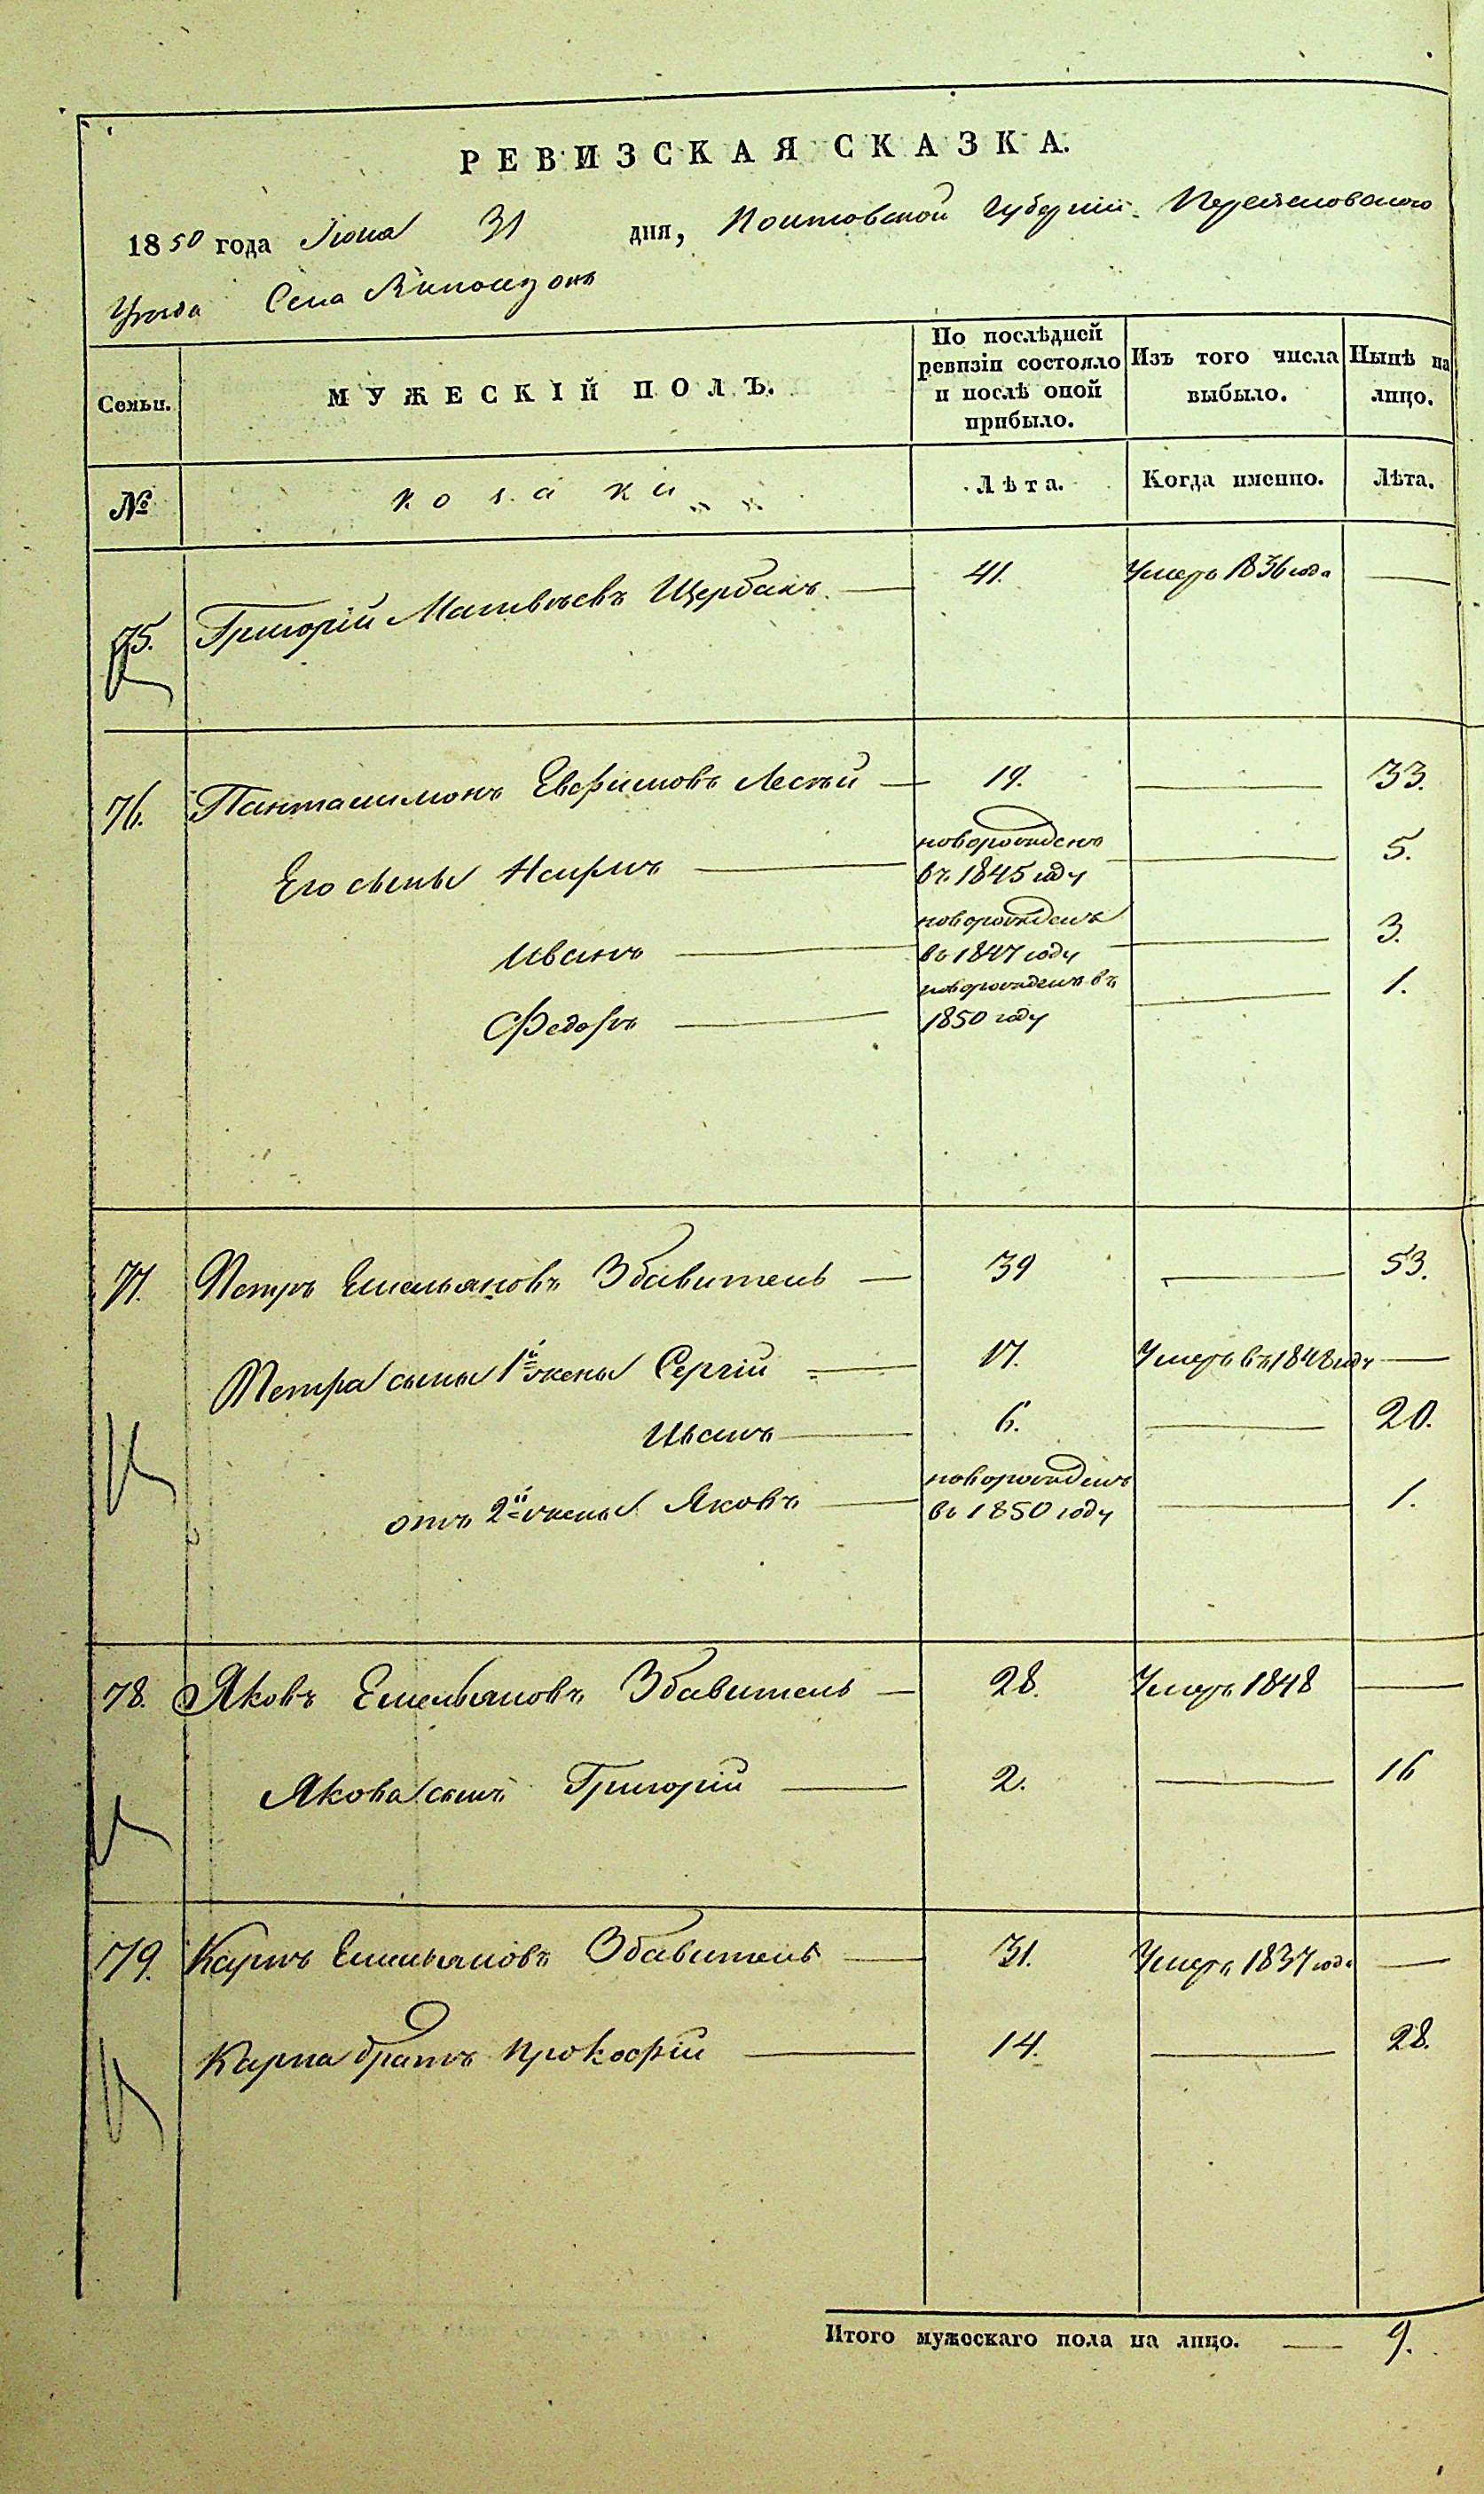 РЕВИЗСКАЯ СКАЗКА.
1850 года Июля 31 дня, Полтавской Губернии Переяславского
Уезда Села
Семьи. МУЖЕСКІЙ ПОЛЪ. По послѣдней ревизіи состояло и послѣ оной прибыло. Изъ того числа выбыло. Нынѣ на лицо.
№ козаки Лѣта. Когда именно. Лѣта.
75. Григорій Матвѣевъ Щербакъ 41. Умеръ 1836 года
76. Пантелимонъ Евфимовъ 19. 33.
Его сыны новорожденъ въ 1845 году 5.
Иванъ новорожденъ въ 1847 году 3.
Федоръ новорожденъ въ 1850 году 1.
77. Петръ Емельяновъ Збавитель 39 53.
Петра сыны 1й жены Сергій 17. Умеръ въ 1848 году
Иванъ 6. 20.
отъ 2й жены Яковъ новорожденъ въ 1850 году 1.
78. Яковъ Емельяновъ Збавитель 28. Умеръ 1848
Якова сынъ Григорій 2. 16
79. Карпъ Емельяновъ Збавитель 31. Умеръ 1837 года
Карпа братъ Прокофій 14. 28.
Итого мужескаго пола на лицо. 9.